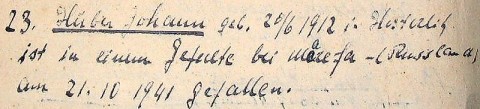 23. Huber Johann geb. 20/6 1912 in
ist in einem Gefechte bei Marefa - (Russland)
am 21.10 1941 gefallen.